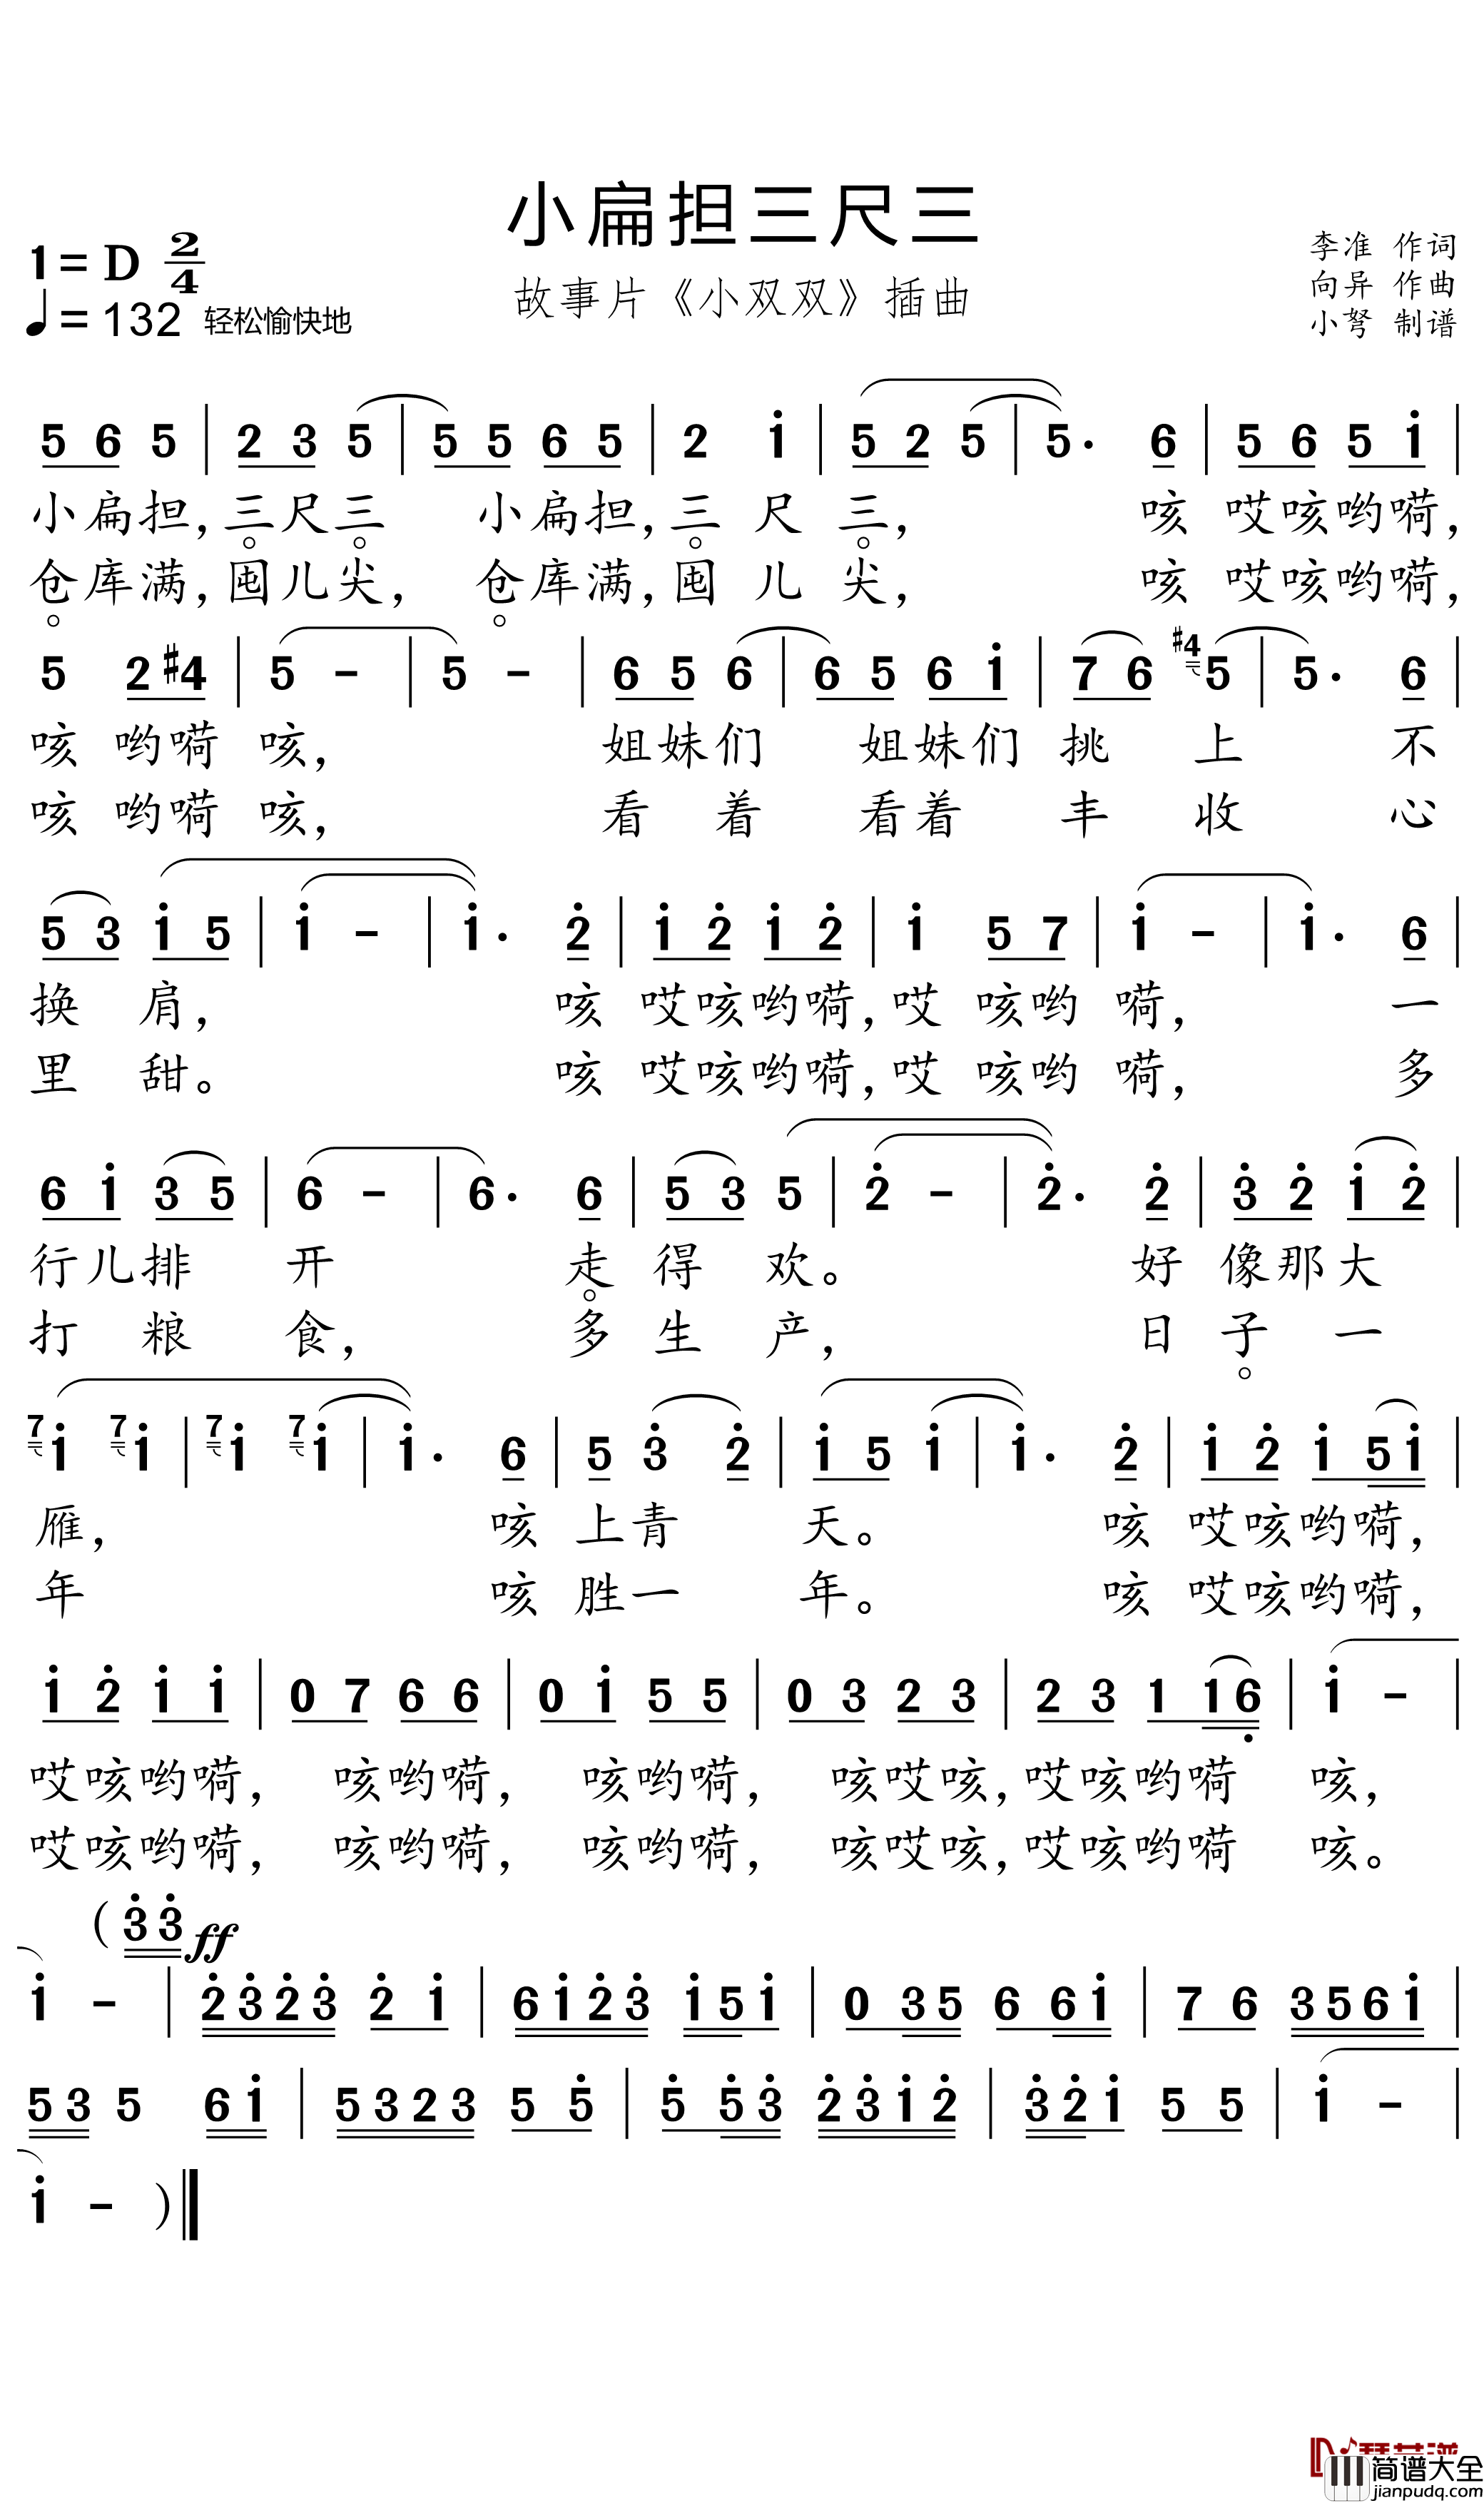 小扁担三尺三
1=D 2/4
♩=132 轻松愉快地
故事片《小双双》插曲
李准 作词
向异 作曲
小弩 制谱
5 6 5 | 2 3 5 | 5 5 6 5 | 2 i | 5 2 5 | 5· 6 | 5 6 5 i |
小扁担,三尺三 小扁担,三尺三, 咳 哎咳哟嗬,
仓库满,囤儿尖, 仓库满,囤儿尖, 咳 哎咳哟嗬,
5 2 #4 | 5 - | 5 - | 6 5 6 | 6 5 6 i | 7 6 #4 5 | 5· 6 |
咳 哟嗬 咳, 姐妹们 姐妹们 挑 上 不
咳 哟嗬 咳, 看 着 看着 丰 收 心
5 3 i 5 | i - | i· 2̇ | i 2̇ i 2̇ | i 5 7 | i - | i· 6 |
换 肩, 咳 哎咳哟嗬,哎 咳哟 嗬, 一
里 甜。 咳 哎咳哟嗬,哎 咳哟 嗬, 多
6 i 3 5 | 6 - | 6· 6 | 5 3 5 | 2̇ - | 2̇· 2̇ | 3̇ 2̇ i 2̇ |
行儿排 开 走 得 欢。 好 像那大
打 粮 食, 多 生 产, 日 子 一
7 i 7 i | 7 i 7 i | i· 6 | 5 3̇ 2̇ | i 5 i | i· 2̇ | i 2̇ i 5 i |
雁, 咳 上青 天。 咳 哎咳哟嗬,
年 咳 胜一 年。 咳 哎咳哟嗬,
i 2̇ i i | 0 7 6 6 | 0 i 5 5 | 0 3 2 3 | 2 3 1 1 6̣ | i - |
哎咳哟嗬, 咳哟嗬, 咳哟嗬, 咳哎咳,哎咳哟嗬 咳,
哎咳哟嗬, 咳哟嗬, 咳哟嗬, 咳哎咳,哎咳哟嗬 咳。
( 3̇ 3̇ ff
i - | 2̇ 3̇ 2̇ 3̇ 2̇ i | 6 i 2̇ 3̇ i 5 i | 0 3 5 6 6 i | 7 6 3 5 6 i |
5 3 5 6 i | 5 3 2 3 5 5̇ | 5̇ 5̇ 3̇ 2̇ 3̇ i 2̇ | 3̇ 2̇ i 5 5 | i - |
i - )‖
简谱大全
jianpudq.com